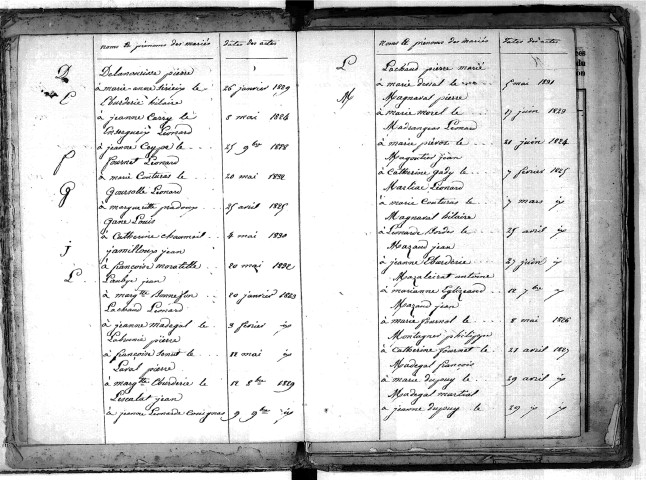 noms & prénoms des mariés dates des actes
D Delanouriere pierre
à marie anne le 26 janvier 1829
E Eburderie hilaire
à jeanne Carry le 8 mai 1824
Léonard
à jeanne le 25 9bre 1828
F Fournet Léonard
à marie Couturas le 20 mai 1832
G Goursolle Léonard
à marguerite pradoux 25 avril 1825
Gane Louis
à Catherine chaumeil 4 mai 1830
j jamilloux jean
à françoise le 20 mai 1832
L Laubye jean
à margte Bonnefon 20 janvier 1823
Lachaud Léonard
à jeanne Madegal le 3 février id
pierre
à françoise le 12 mai id
Laval pierre
à margte Eburderie le 12 8bre 1829
Lescalat jean
à jeanne Léonarde 9 9bre id
noms & prénoms des mariés Dates des actes
L Lachaud pierre marie
à marie le 5 mai 1831
M Magnaval pierre
à marie morel le 17 juin 1823
Madrangeas Léonard
à marie le 21 juin 1824
jean
à Catherine gady le 7 février 1825
Léonard
à marie Couturas le 7 mars id
Magnaval hilaire
à Léonarde Bordes le 25 avril id
Mazaud jean
à jeanne Eburderie 27 juin id
antoine
à marianne 12 7bre id
Mazaud jean
à marie Fournol le 8 mai 1826
philippe
à Catherine fournet le 21 avril 1827
Madegal françois
à marie dupuy le 29 avril id
Madegal martial
à jeanne dupuy le 29 id id